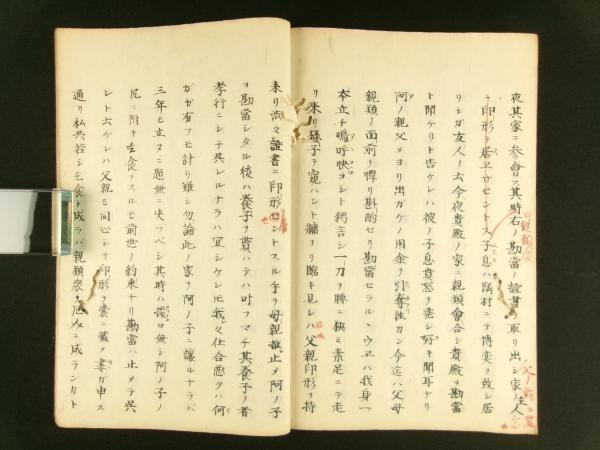 夜其家ニ参會ス其時右ノ勘當ノ證書ヲ取リ出シ家ノ主人
テ印形ヲ居エロセントス子息ハ隣村ニテ博奕ヲ致シ居
リシガ友人ノ云今夜貴殿ノ家ニ親類會合シ貴殿ヲ勘當
ト聞ケリト告ケレハ彼ノ子息憤怒ヲ発シ好キ聞耳ナリ
阿ノ親父メヨリ出ガケノ用金ヲ引奪往カン今迄ハ父母
親類ノ面前ヲ憚リ斟酌セリ勘當セラルヽウエハ我身一
本立チ嗚呼快ヨシト独言シ一刀ヲ腰ニ狹ミ素足ニテ走
リ来リ様子ヲ窺ハント牖ヨリ臨キ見レハ父親印形ヲ持
来リ漸々證書ニ印形セントスル手ヲ母親推止メ阿ノ子
ヲ勘當シタル後ハ養子ヲ貰ハテハ叶フマチ其養子ノ者
孝行ニシテ呉レルナラハ宜シケレ𪜈我々仕合悪クハ何
ガガ有フモ計リ難シ勿論此ノ家ヲ阿ノ子ニ譲ルナラバ
三年モ立タヌニ題無ニ失フベシ其時ハ無シ阿ノ子ノ
尻ニ附キ乞食リスルモ前世ノ約束ナリ勘當ハ止メテ呉
レト云ケレハ父親モ同心シテ印形ヲ嚢ニ藏メ妻ガ申ス
通リ私共若シ乞食ト成ラハ親類衆ノ厄介ニ成ランカト